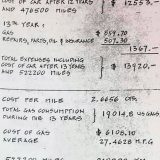 COST OF CAR AFTER 12 YEARS
AND 476500 MILES $12553.—
13TH YEAR:
GAS $ 859.70
REPAIRS, PARTS, OIL & INSURANCE 507.30
1367.—
TOTAL EXPENSES INCLUDING
COST OF CAR AFTER 13 YEARS $13920.—
AND 522200 MILES
COST PER MILE 2.6656 CTS.
TOTAL GAS CONSUMPTION
DURING THE 13 YEARS 19014.8 US GALS
COST OF GAS $6105.10
AVERAGE 27.4628 M.P.G